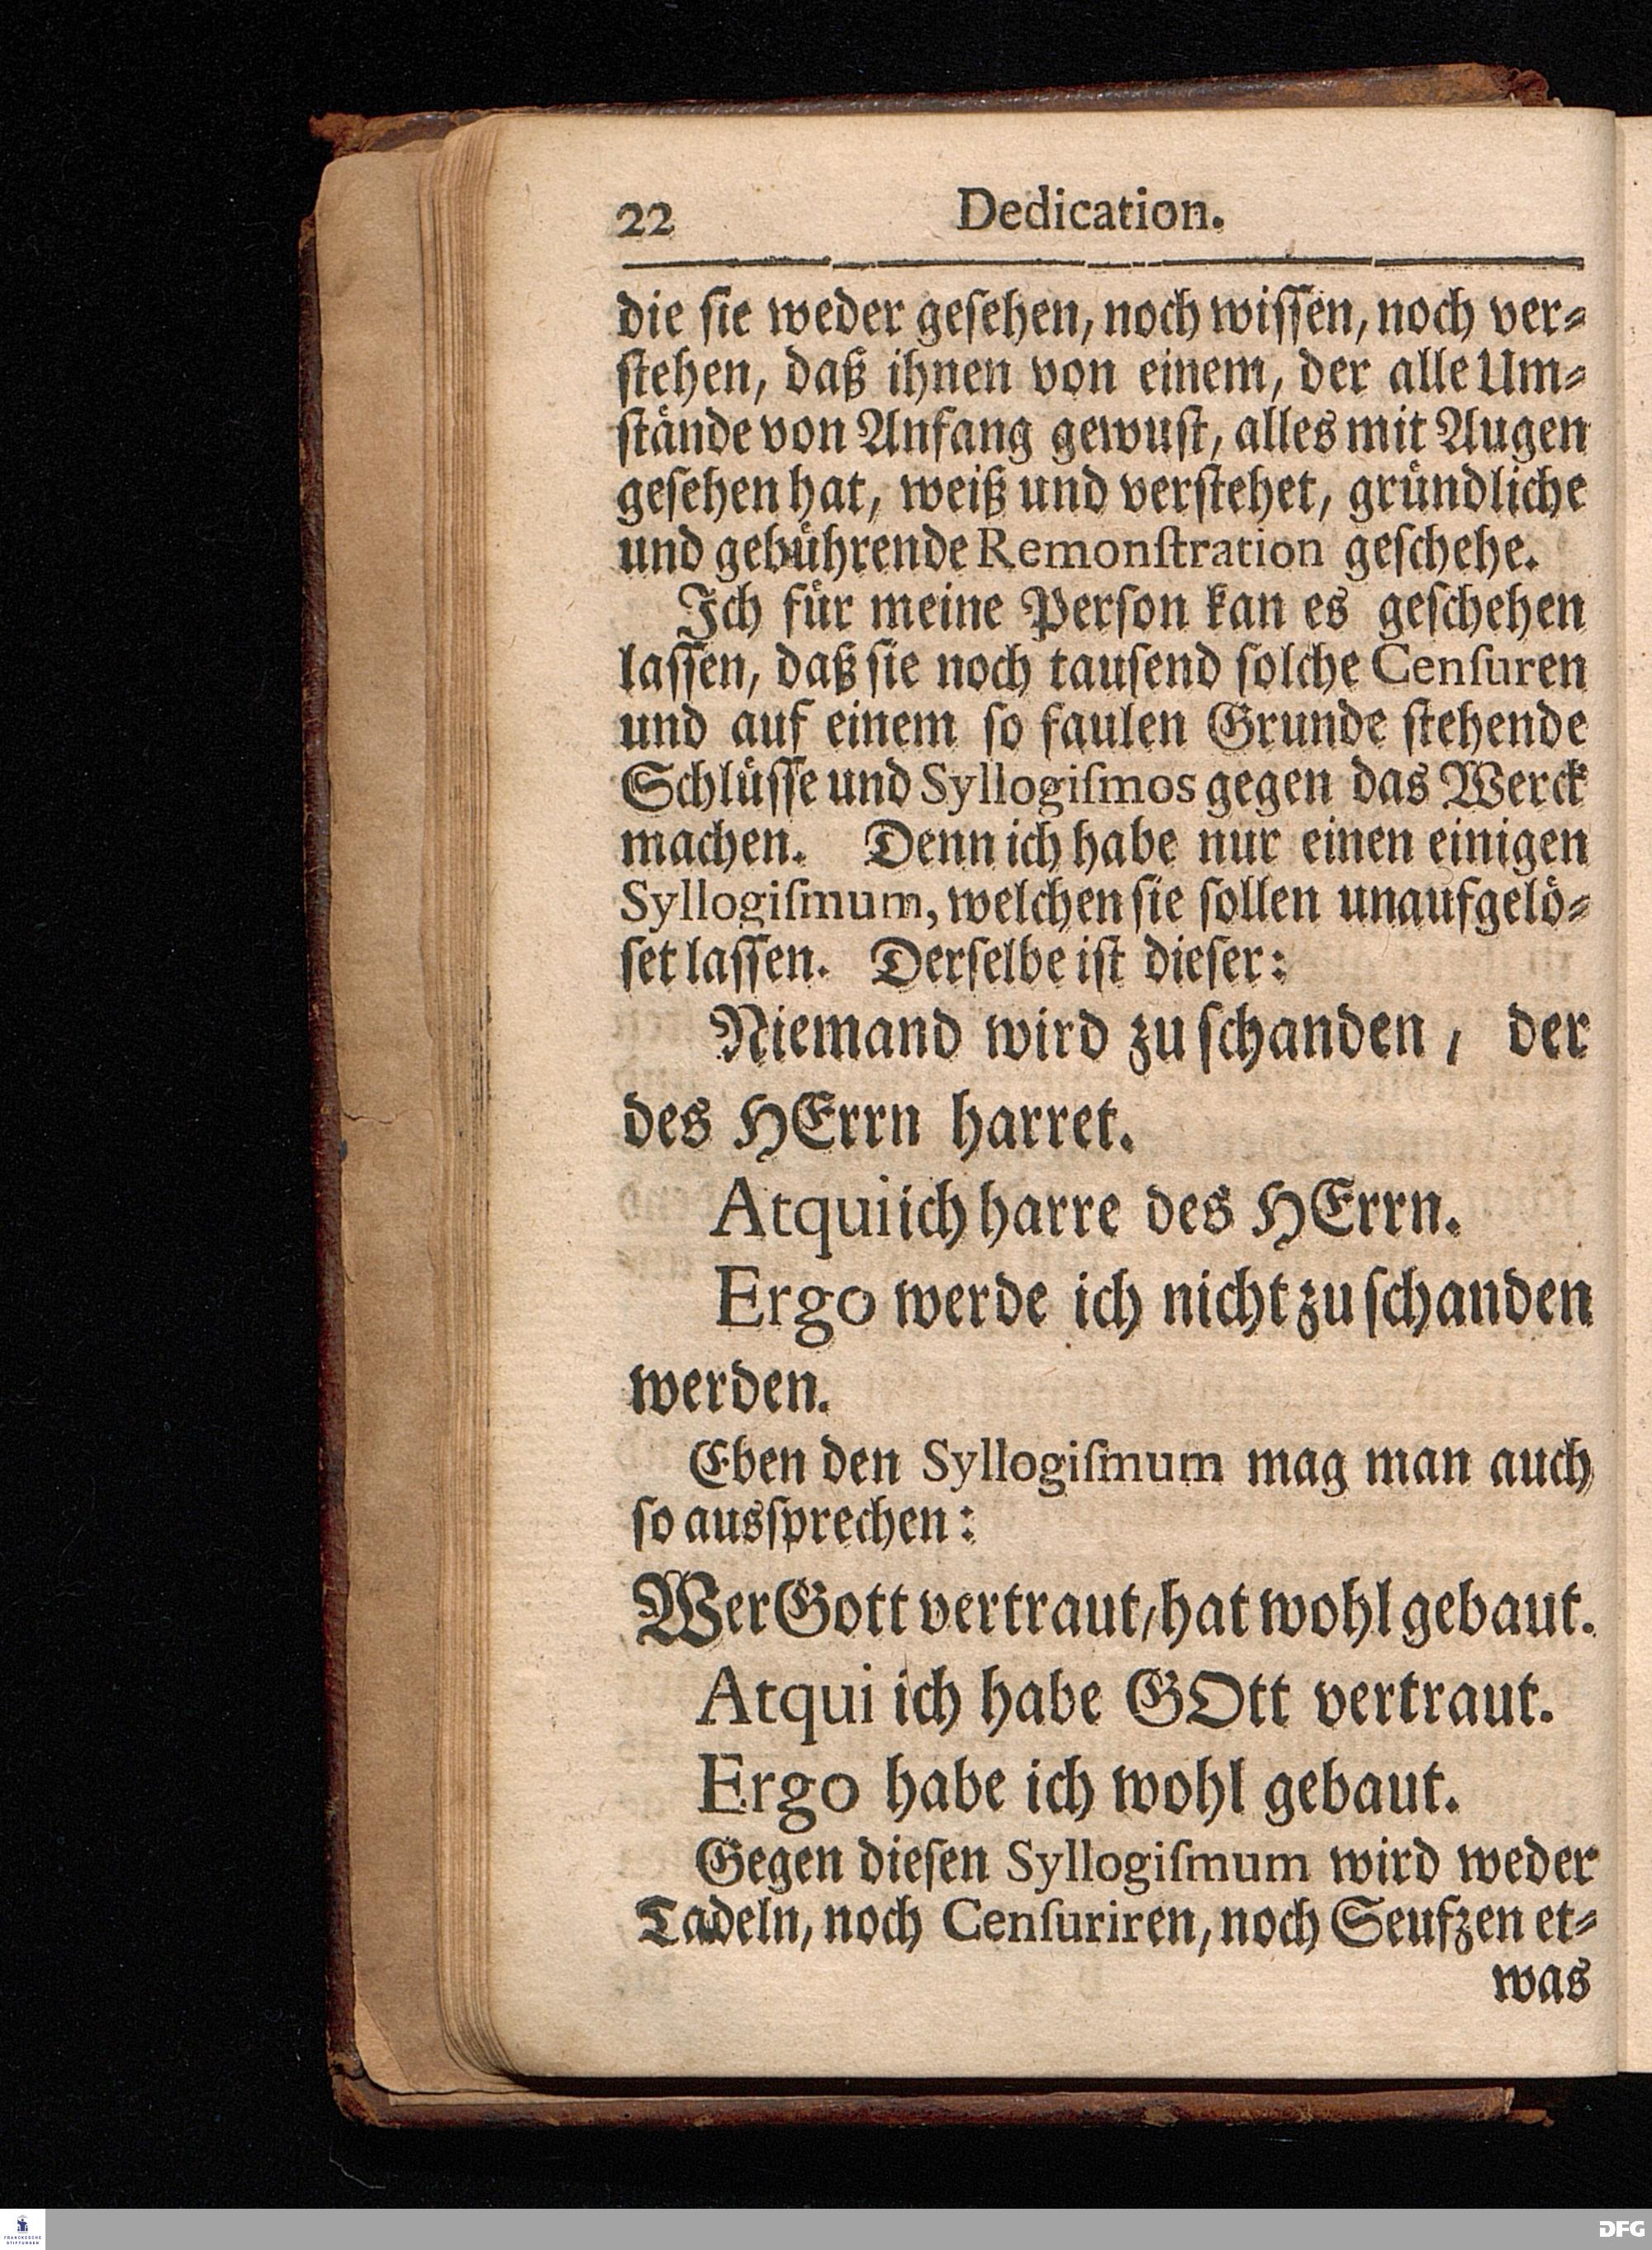 22 Dedication.
die ſie weder geſehen, noch wiſſen, noch ver⸗
ſtehen, daß ihnen von einem, der alle Um⸗
ſtände von Anfang gewuſt, alles mit Augen
geſehen hat, weiß und verſtehet, gründliche
und gebührende Remonſtration geſchehe.
Ich für meine Perſon kan es geſchehen
laſſen, daß ſie noch tauſend ſolche Cenſuren
und auf einem ſo faulen Grunde ſtehende
Schlüſſe und Syllogiſmos gegen das Werck
machen. Denn ich habe nur einen einigen
Syllogiſmum, welchen ſie ſollen unaufgelö⸗
ſet laſſen. Derſelbe iſt dieſer:
Niemand wird zu ſchanden, der
des HErrn harret.
Atqui ich harre des HErrn.
Ergo werde ich nicht zu ſchanden
werden.
Eben den Syllogiſmum mag man auch
ſo ausſprechen:
Wer Gott vertraut/ hat wohl gebaut.
Atqui ich habe GOtt vertraut.
Ergo habe ich wohl gebaut.
Gegen dieſen Syllogiſmum wird weder
Tadeln, noch Cenſuriren, noch Seufzen et⸗
was
FRANCKESCHE
STIFTUNGEN
DFG